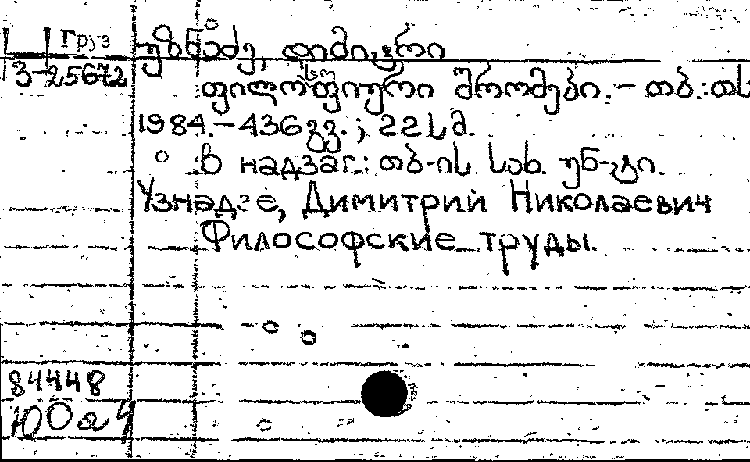 Груз
უზნაძე, დიმიტრი
3-25672
ფილოსოფიური შრომები. - თბ.: თს
1984. - 436 გვ.; 22 სმ.
В надзаг.: თბ-ის სახ. უნ-ტი.
Узнадзе, Димитрий Николаевич
Философские труды.
84448